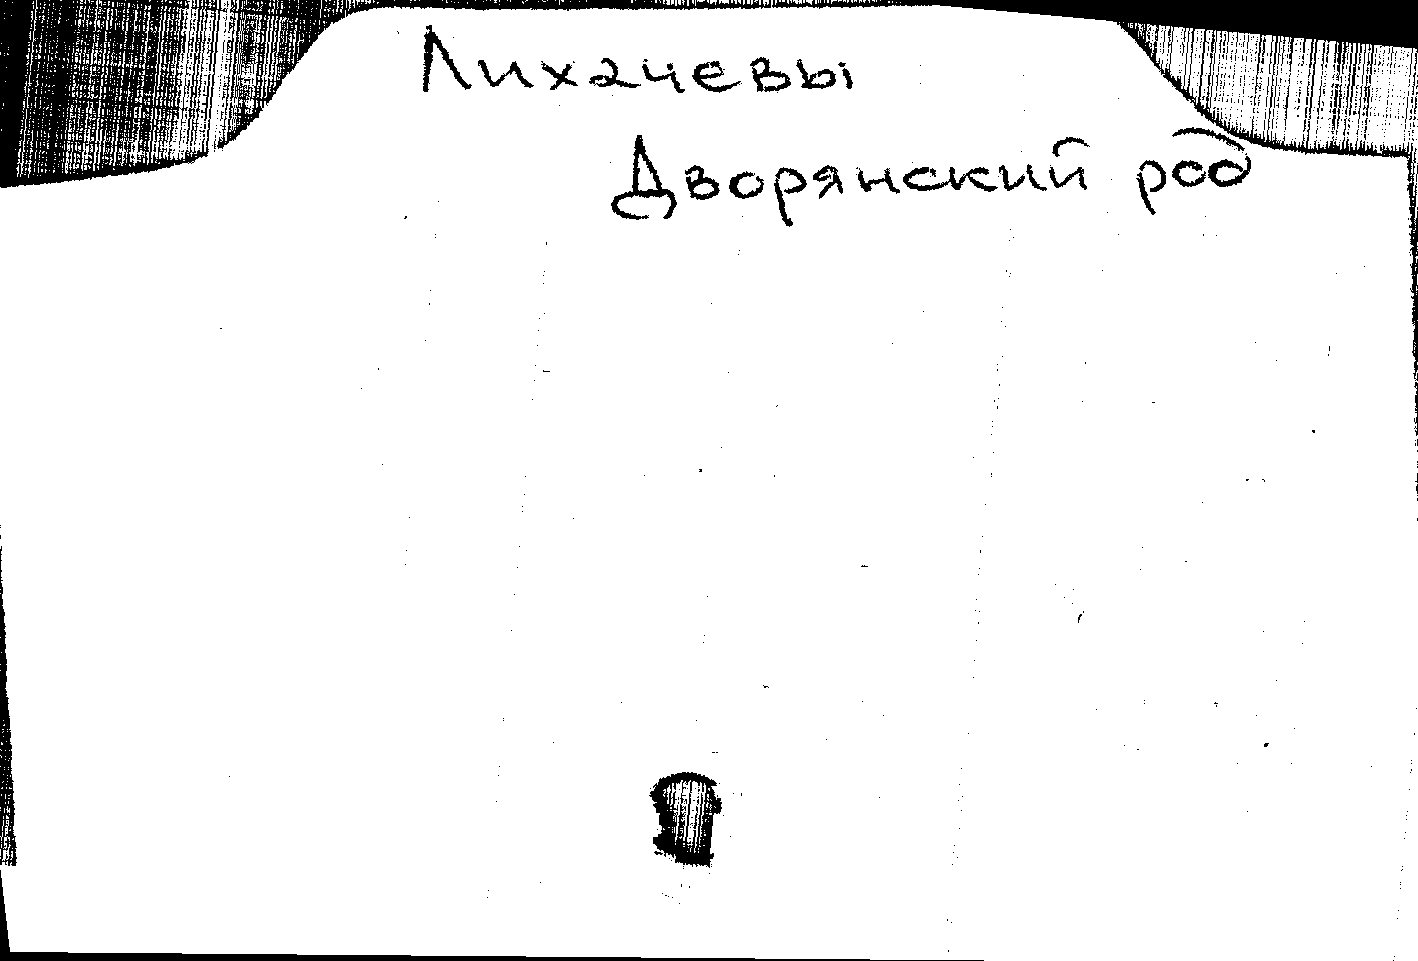 Лихачевы
Дворянский род